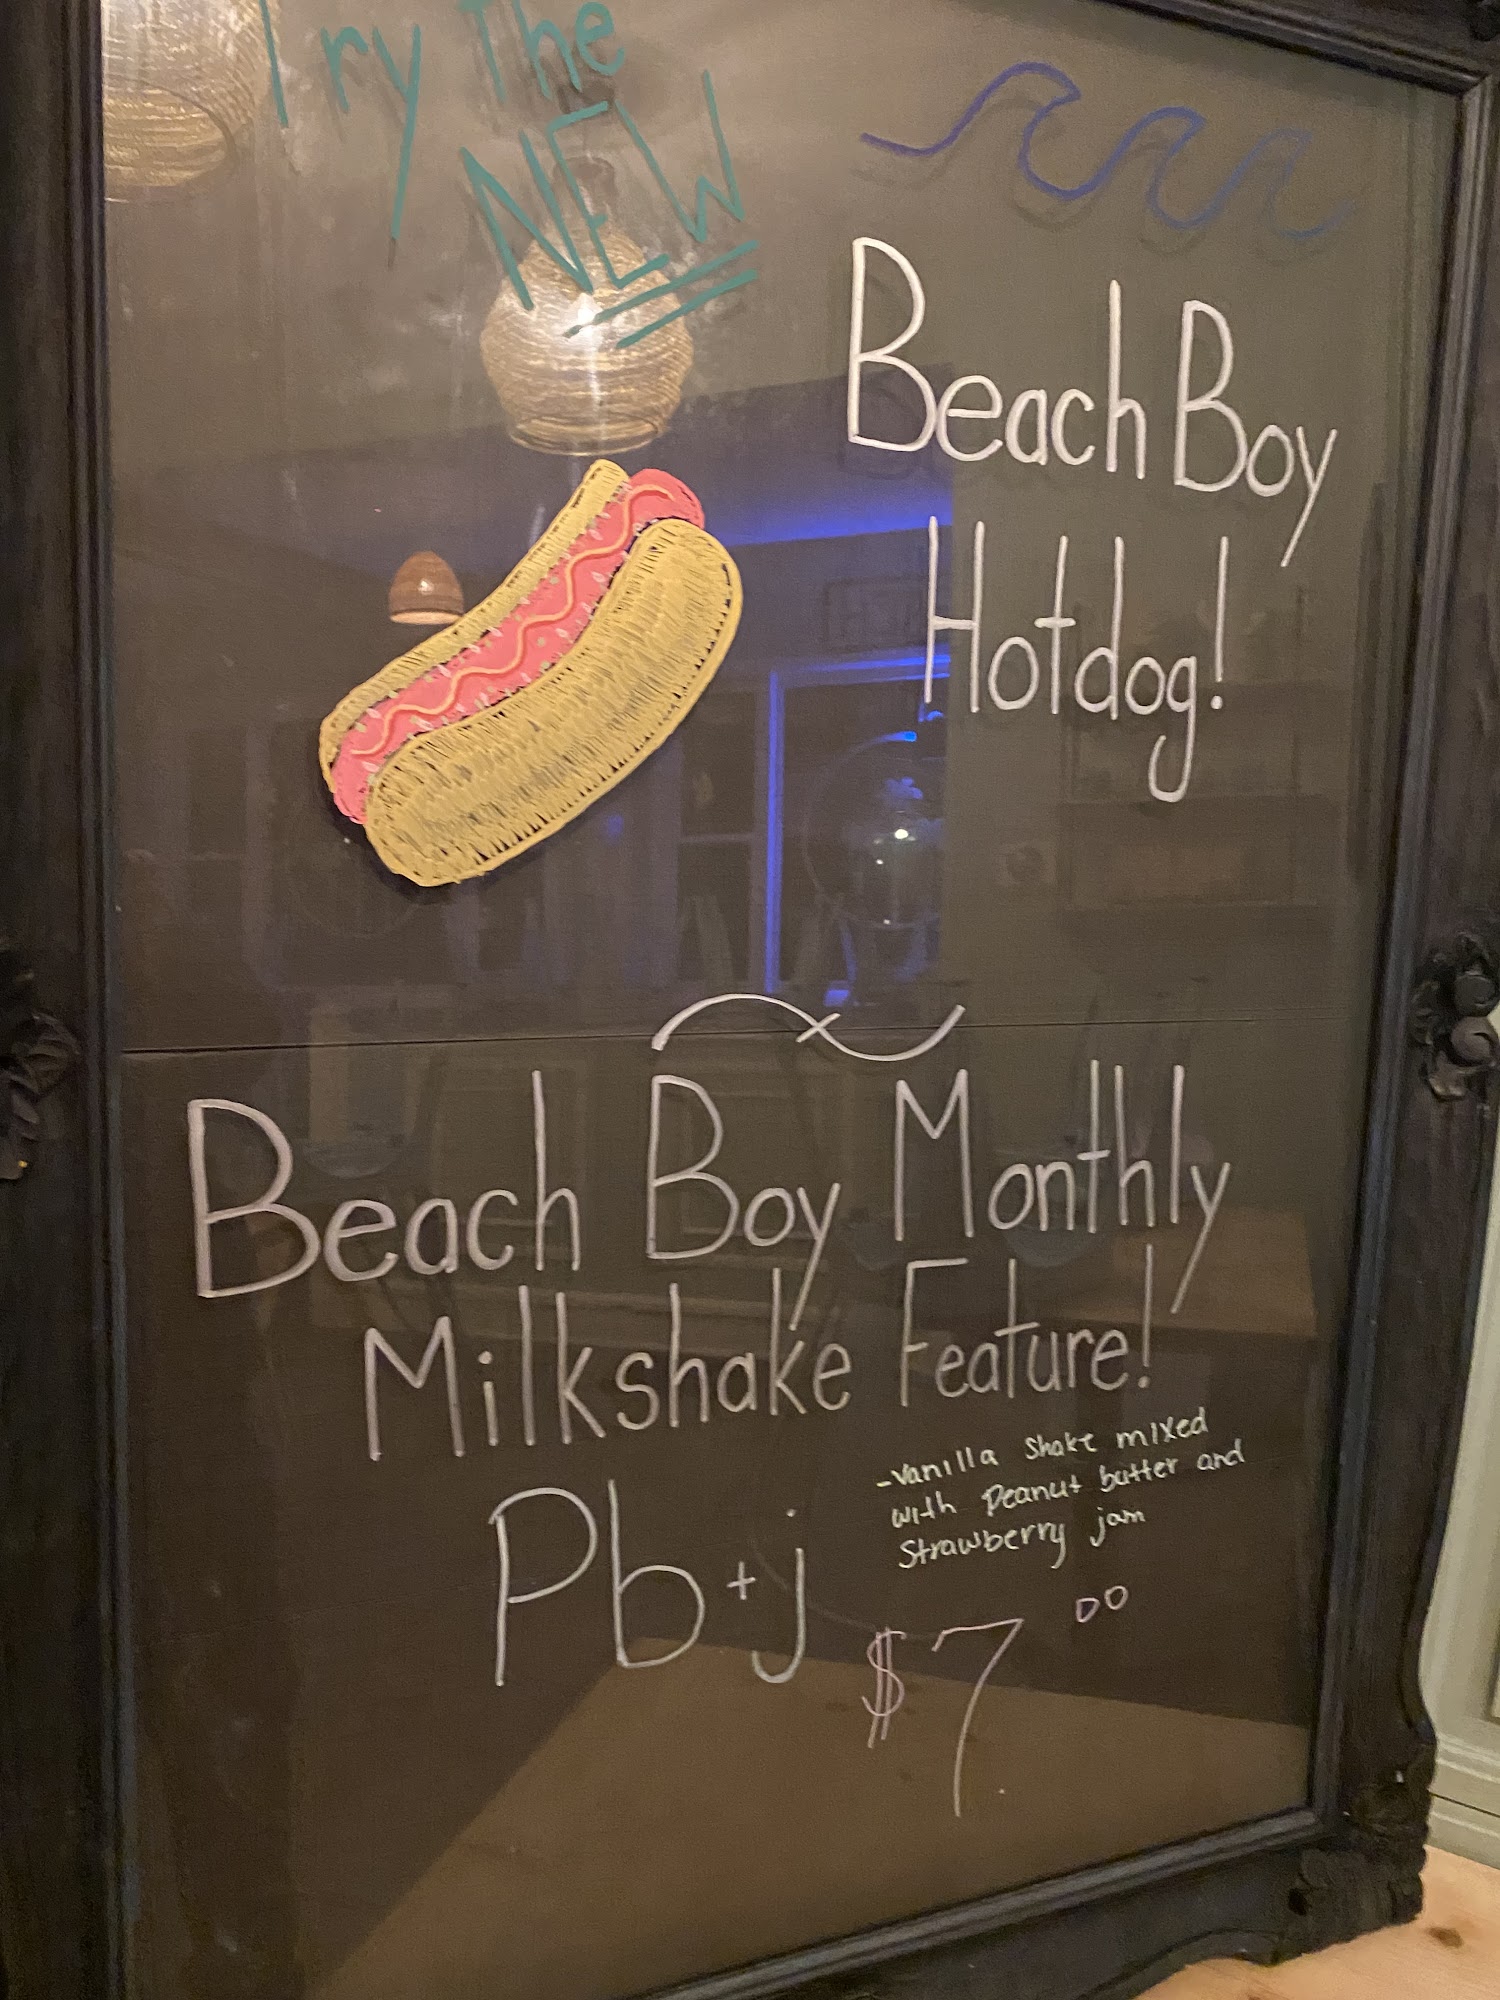 Try The
NEW
Beach Boy
Hotdog!
Beach Boy Monthly
Milkshake Feature!
Pb+j
-Vanilla Shake mixed
with Peanut butter and
Strawberry jam
$7.00